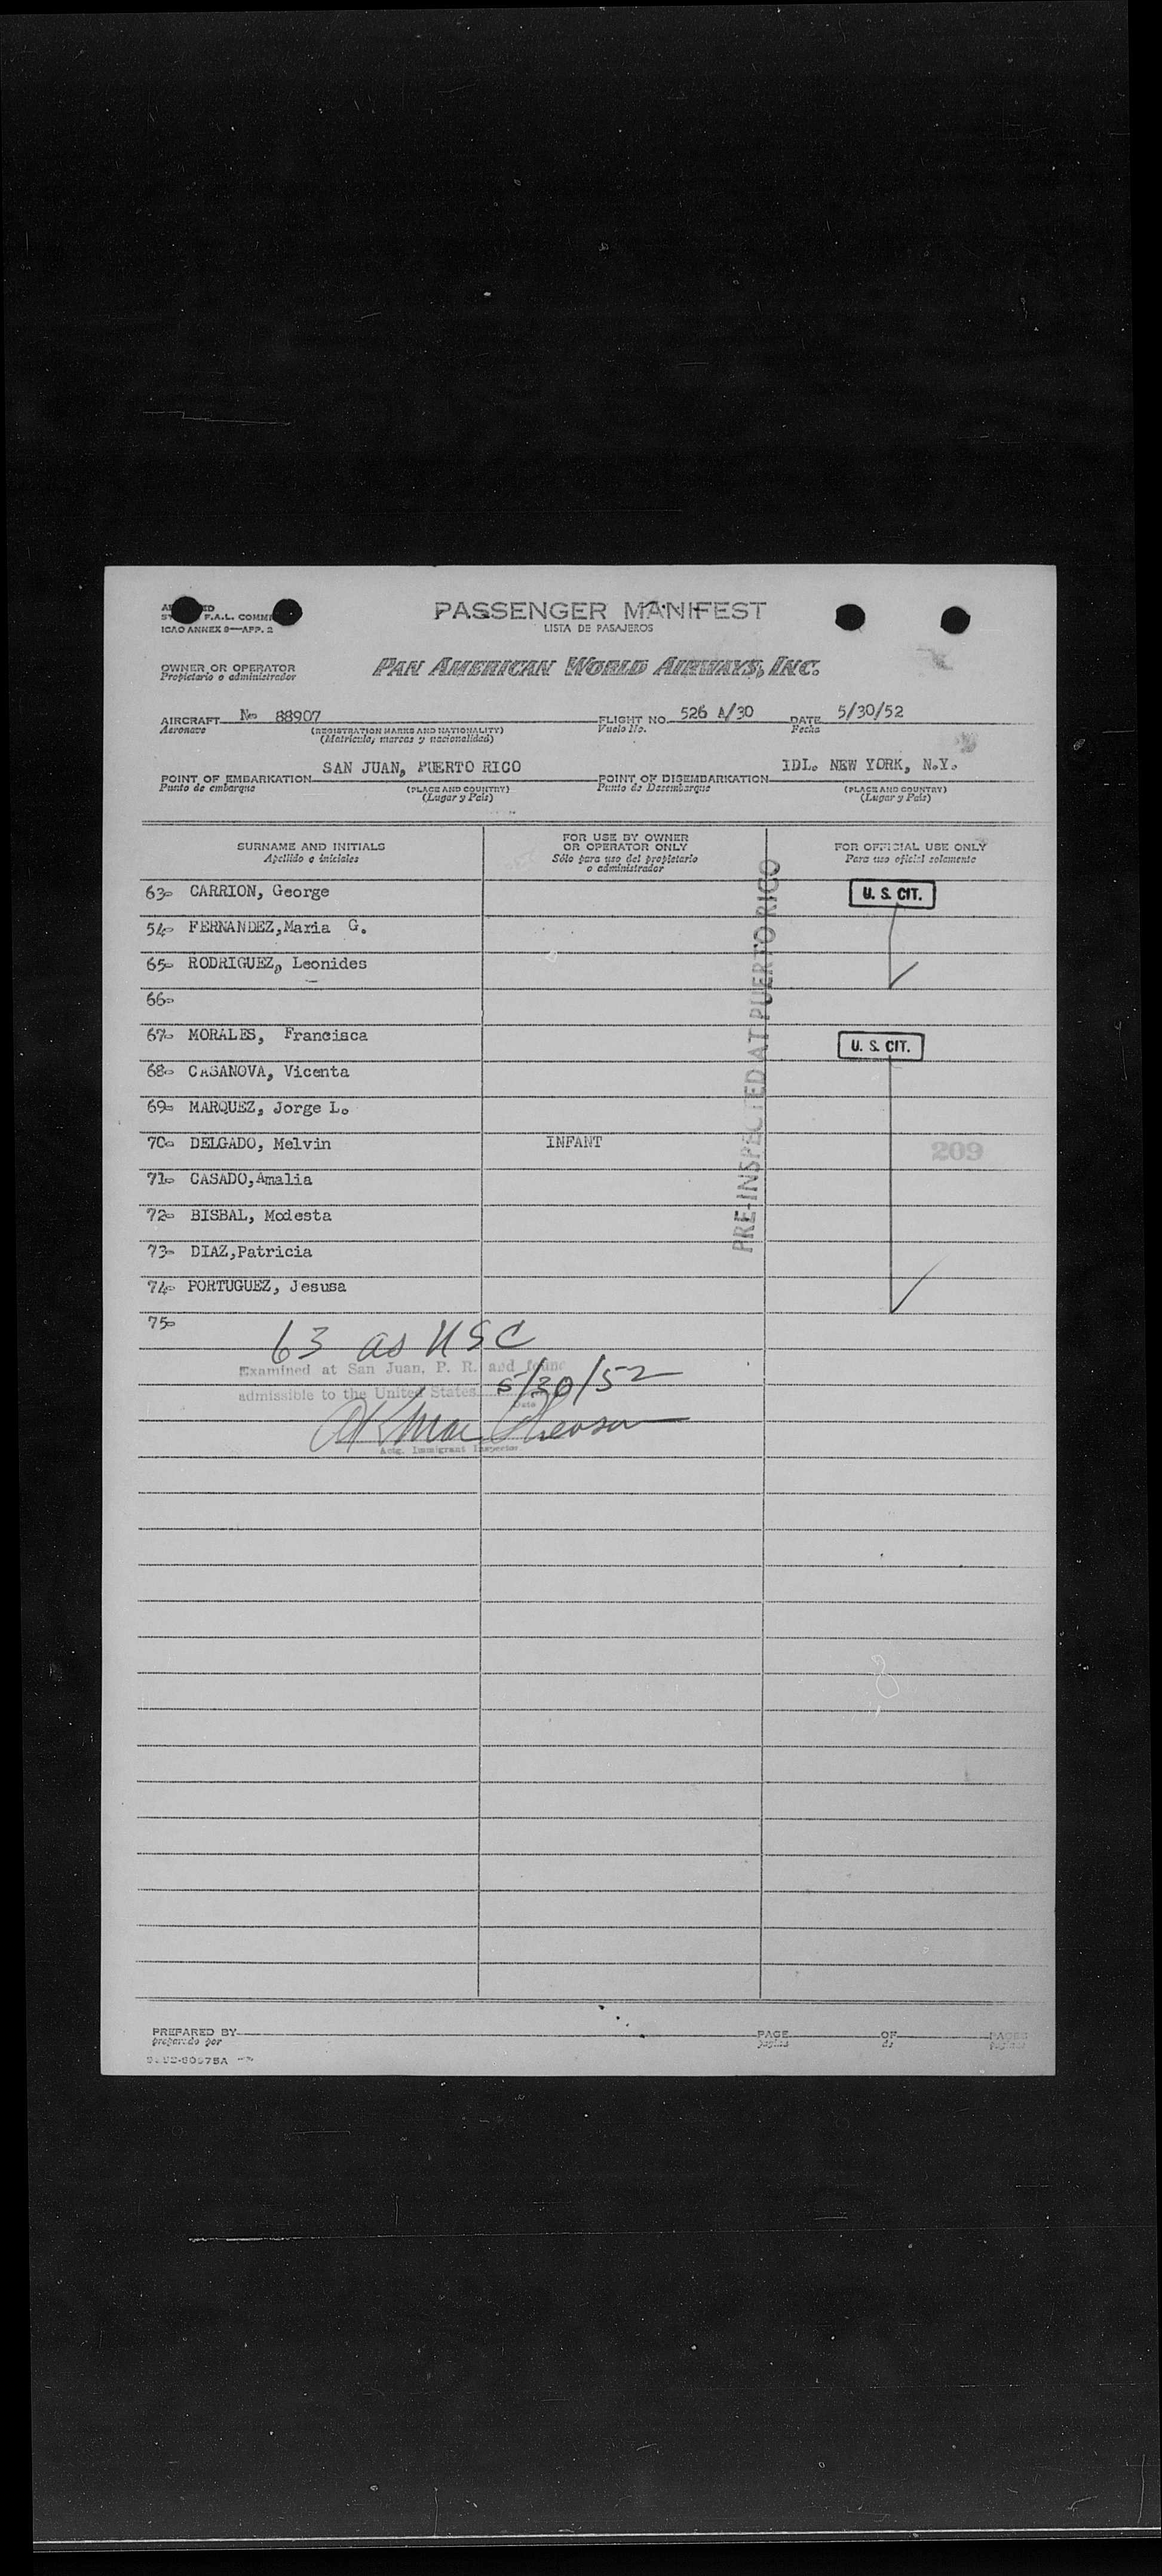 PASSENGER MANIFEST
LISTA DE PASAJEROS
F.A.L. COMM
ICAO ANNEX 9—APP. 2
OWNER OR OPERATOR
Propietario o administrador
PAN AMERICAN WORLD AIRWAYS, INC.
AIRCRAFT No 88907 FLIGHT NO. 526 A/30 DATE 5/30/52
Aeronave (REGISTRATION MARKS AND NATIONALITY) Vuelo No. Fecha
(Matricula, marcas y nacionalidad)
POINT OF EMBARKATION SAN JUAN, PUERTO RICO POINT OF DISEMBARKATION IDL. NEW YORK, N.Y.
Punto de embarque (PLACE AND COUNTRY) Punto de Desembarque (PLACE AND COUNTRY)
(Lugar y País) (Lugar y País)
SURNAME AND INITIALS FOR USE BY OWNER OR OPERATOR ONLY FOR OFFICIAL USE ONLY
Apellido e iniciales Sólo para uso del propietario o administrador Para uso oficial solamente
63- CARRION, George U. S. CIT.
54- FERNANDEZ,Maria G.
65- RODRIGUEZ, Leonides
66-
67- MORALES, Francisca U. S. CIT.
68- CASANOVA, Vicenta
69- MARQUEZ, Jorge L.
70- DELGADO, Melvin INFANT 209
71- CASADO,Amalia
72- BISBAL, Modesta
73- DIAZ,Patricia
74- PORTUGUEZ, Jesusa
75-
PRE-INSPECTED AT PUERTO RICO
63 as USC
Examined at San Juan, P. R. and found
admissible to the United States 5/30/52
Date
Actg. Immigrant Inspector
PREPARED BY PAGE OF PAGES
preparado por pagina de paginas